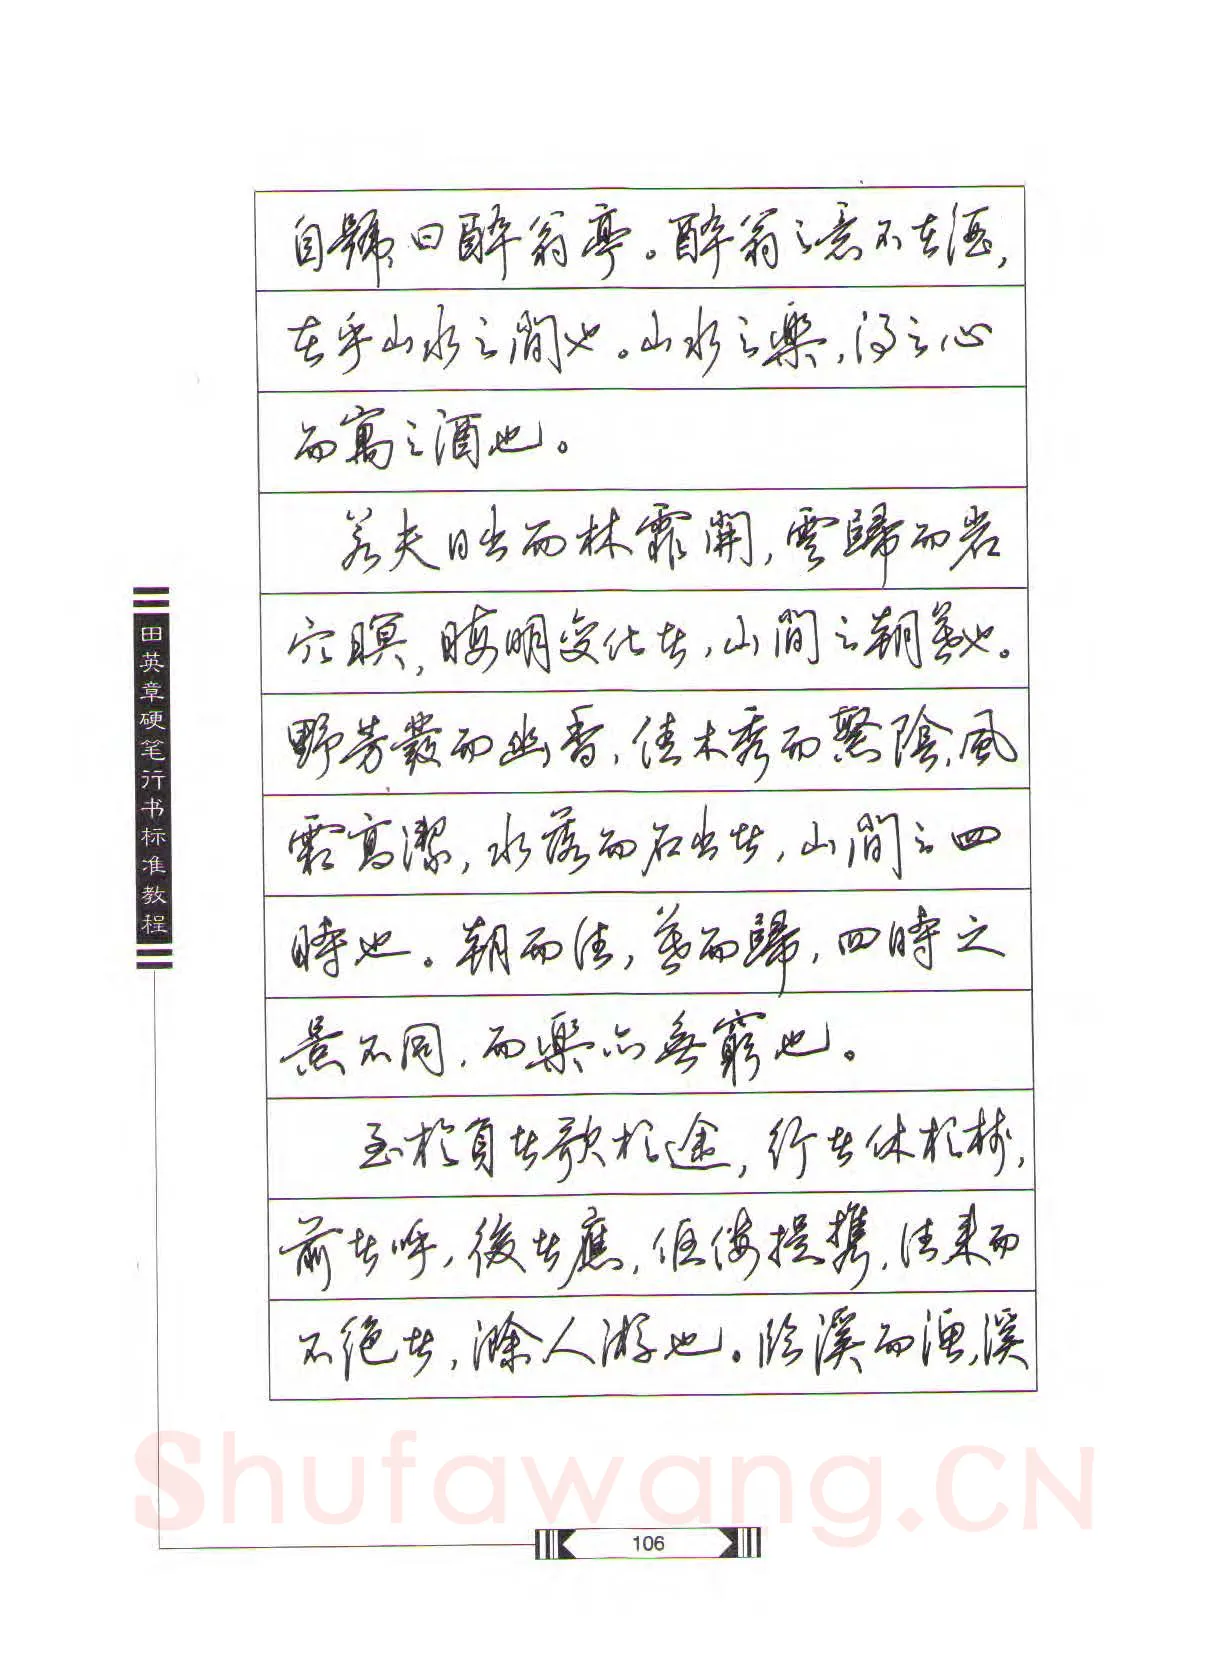 自號曰醉翁亭。醉翁之意不在酒，
在乎山水之間也。山水之樂，得之心
而寓之酒也。
若夫日出而林霏開，雲歸而岩
穴暝，晦明变化者，山間之朝暮也。
野芳發而幽香，佳木秀而繁陰，風
霜高潔，水落而石出者，山間之四
時也。朝而往，暮而歸，四時之
景不同，而樂亦無窮也。
至於負者歌於途，行者休於樹，
前者呼，後者應，傴僂提攜，往来而
不絕者，滁人游也。臨溪而漁，溪
田英章硬笔行书标准教程
Shufawang.CN
106